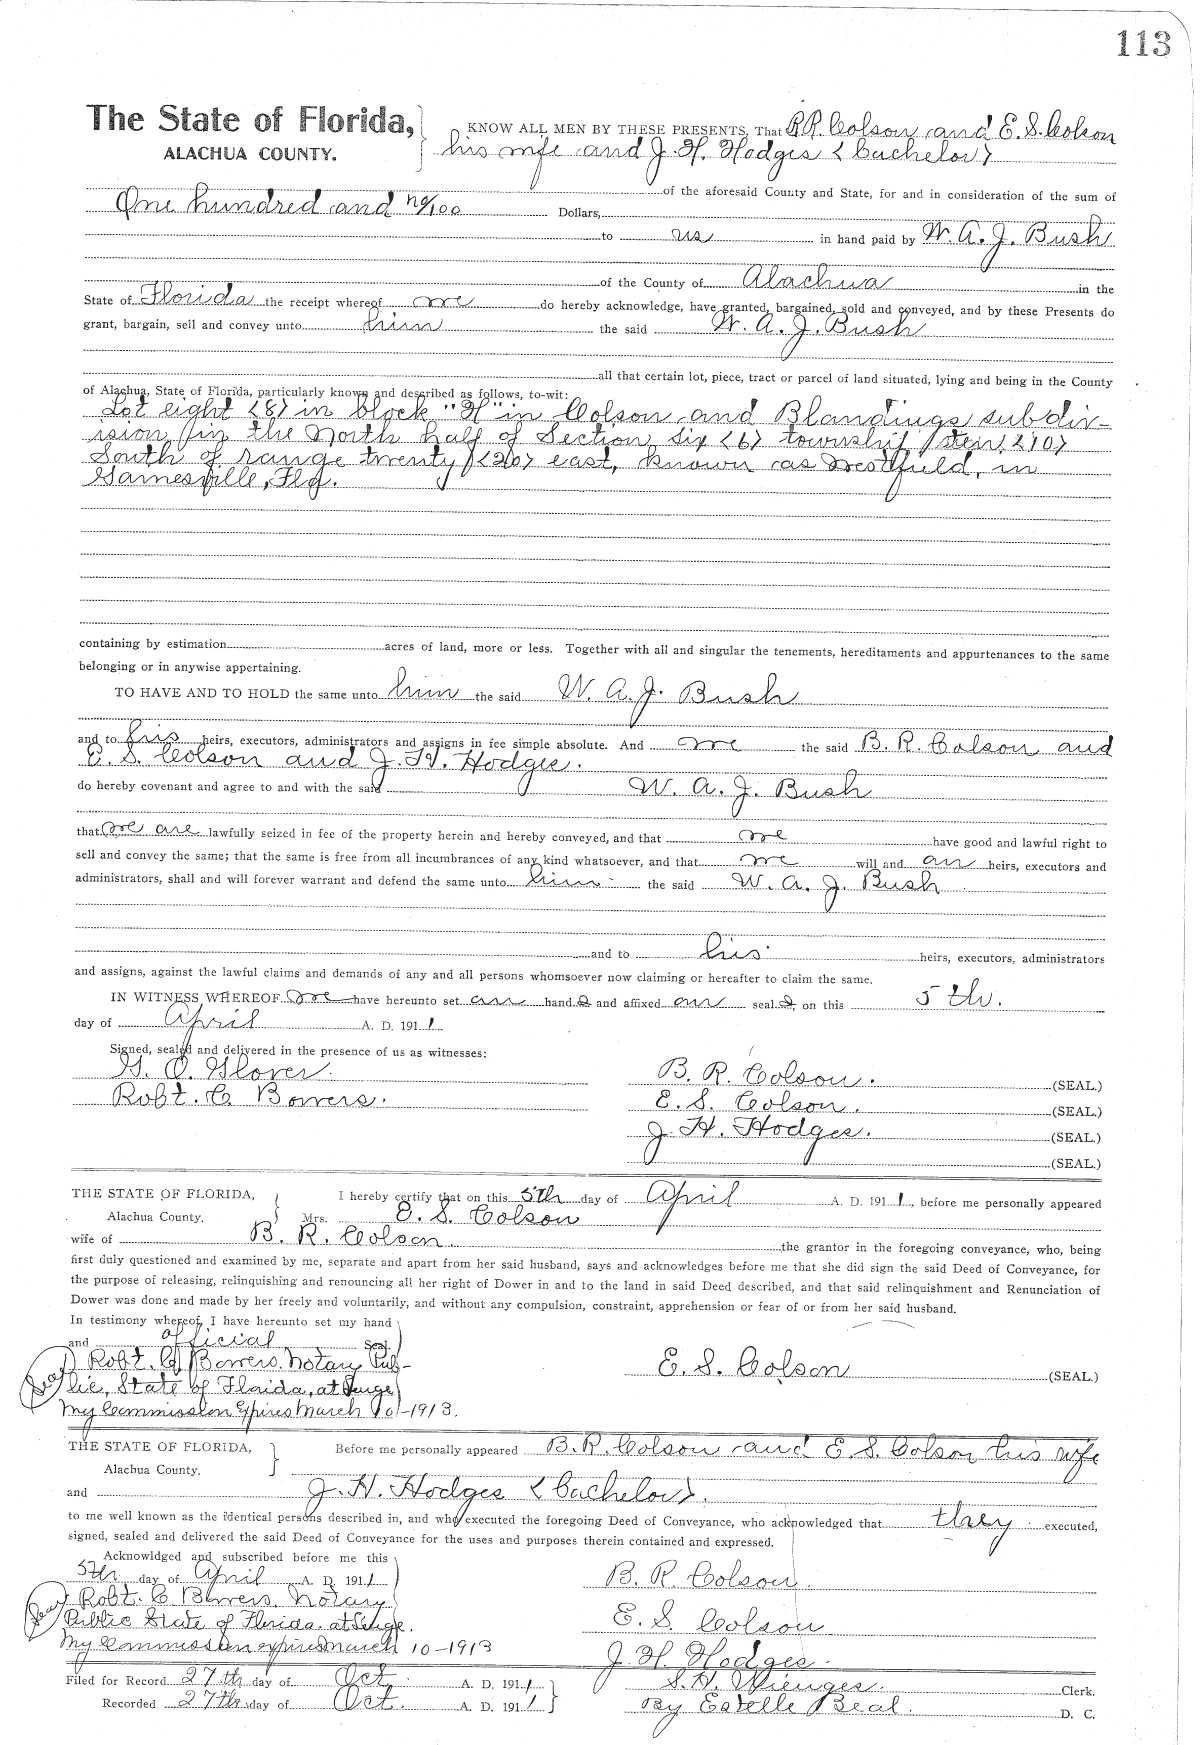 113
The State of Florida, KNOW ALL MEN BY THESE PRESENTS, That B.R. Colson and E. S. Colson
ALACHUA COUNTY. his wife and J. H. Hodges <bachelor>
of the aforesaid County and State, for and in consideration of the sum of
One hundred and no/100 Dollars,
to us in hand paid by W. A. J. Bush
of the County of Alachua in the
State of Florida the receipt whereof we do hereby acknowledge, have granted, bargained, sold and conveyed, and by these Presents do
grant, bargain, sell and convey unto him the said W. A. J. Bush
all that certain lot, piece, tract or parcel of land situated, lying and being in the County
of Alachua, State of Florida, particularly known and described as follows, to-wit:
Lot eight <8> in block "H" in Colson and Blandings subdiv-
ision, in the North half of Section six <6> township ten <10>
South of range twenty <20> east, known as Westfield, in
Gainesville, Fla.
containing by estimation acres of land, more or less. Together with all and singular the tenements, hereditaments and appurtenances to the same
belonging or in anywise appertaining.
TO HAVE AND TO HOLD the same unto him the said W. A. J. Bush
and to his heirs, executors, administrators and assigns in fee simple absolute. And we the said B. R. Colson and
E. S. Colson and J. H. Hodges.
do hereby covenant and agree to and with the said W. A. J. Bush
that we are lawfully seized in fee of the property herein and hereby conveyed, and that we have good and lawful right to
sell and convey the same; that the same is free from all incumbrances of any kind whatsoever, and that we will and our heirs, executors and
administrators, shall and will forever warrant and defend the same unto him the said W. A. J. Bush
and to his heirs, executors, administrators
and assigns, against the lawful claims and demands of any and all persons whomsoever now claiming or hereafter to claim the same.
IN WITNESS WHEREOF we have hereunto set our hand s and affixed our seal s, on this 5th.
day of April A. D. 1911
Signed, sealed and delivered in the presence of us as witnesses:
G. O. Glover. B. R. Colson. (SEAL.)
Robt. C Bowers. E. S. Colson. (SEAL.)
J. H. Hodges. (SEAL.)
(SEAL.)
THE STATE OF FLORIDA, I hereby certify that on this 5th day of April A. D. 1911, before me personally appeared
Alachua County. Mrs. E. S. Colson
wife of B. R. Colson the grantor in the foregoing conveyance, who, being
first duly questioned and examined by me, separate and apart from her said husband, says and acknowledges before me that she did sign the said Deed of Conveyance, for
the purpose of releasing, relinquishing and renouncing all her right of Dower in and to the land in said Deed described, and that said relinquishment and Renunciation of
Dower was done and made by her freely and voluntarily, and without any compulsion, constraint, apprehension or fear of or from her said husband.
In testimony whereof, I have hereunto set my hand
and official Seal.
Robt. C Bowers, Notary Pub- E. S. Colson (SEAL.)
Seal lic, State of Florida, at Large
My Commission Expires March 10-1913.
THE STATE OF FLORIDA, Before me personally appeared B. R. Colson and E S. Colson his wife
Alachua County.
and J. H. Hodges <bachelor>.
to me well known as the identical persons described in, and who executed the foregoing Deed of Conveyance, who acknowledged that they executed,
signed, sealed and delivered the said Deed of Conveyance for the uses and purposes therein contained and expressed.
Acknowldged and subscribed before me this
5th day of April A. D. 1911 B. R. Colson.
Seal Robt. C Bowers, Notary
Public State of Florida. at Large. E. S. Colson
My Commission expires March 10-1913 J. H. Hodges.
Filed for Record 27th day of Oct. A. D. 1911 S. H. Wienges. Clerk.
Recorded 27th day of Oct. A. D. 1911 By Estelle Beal. D. C.